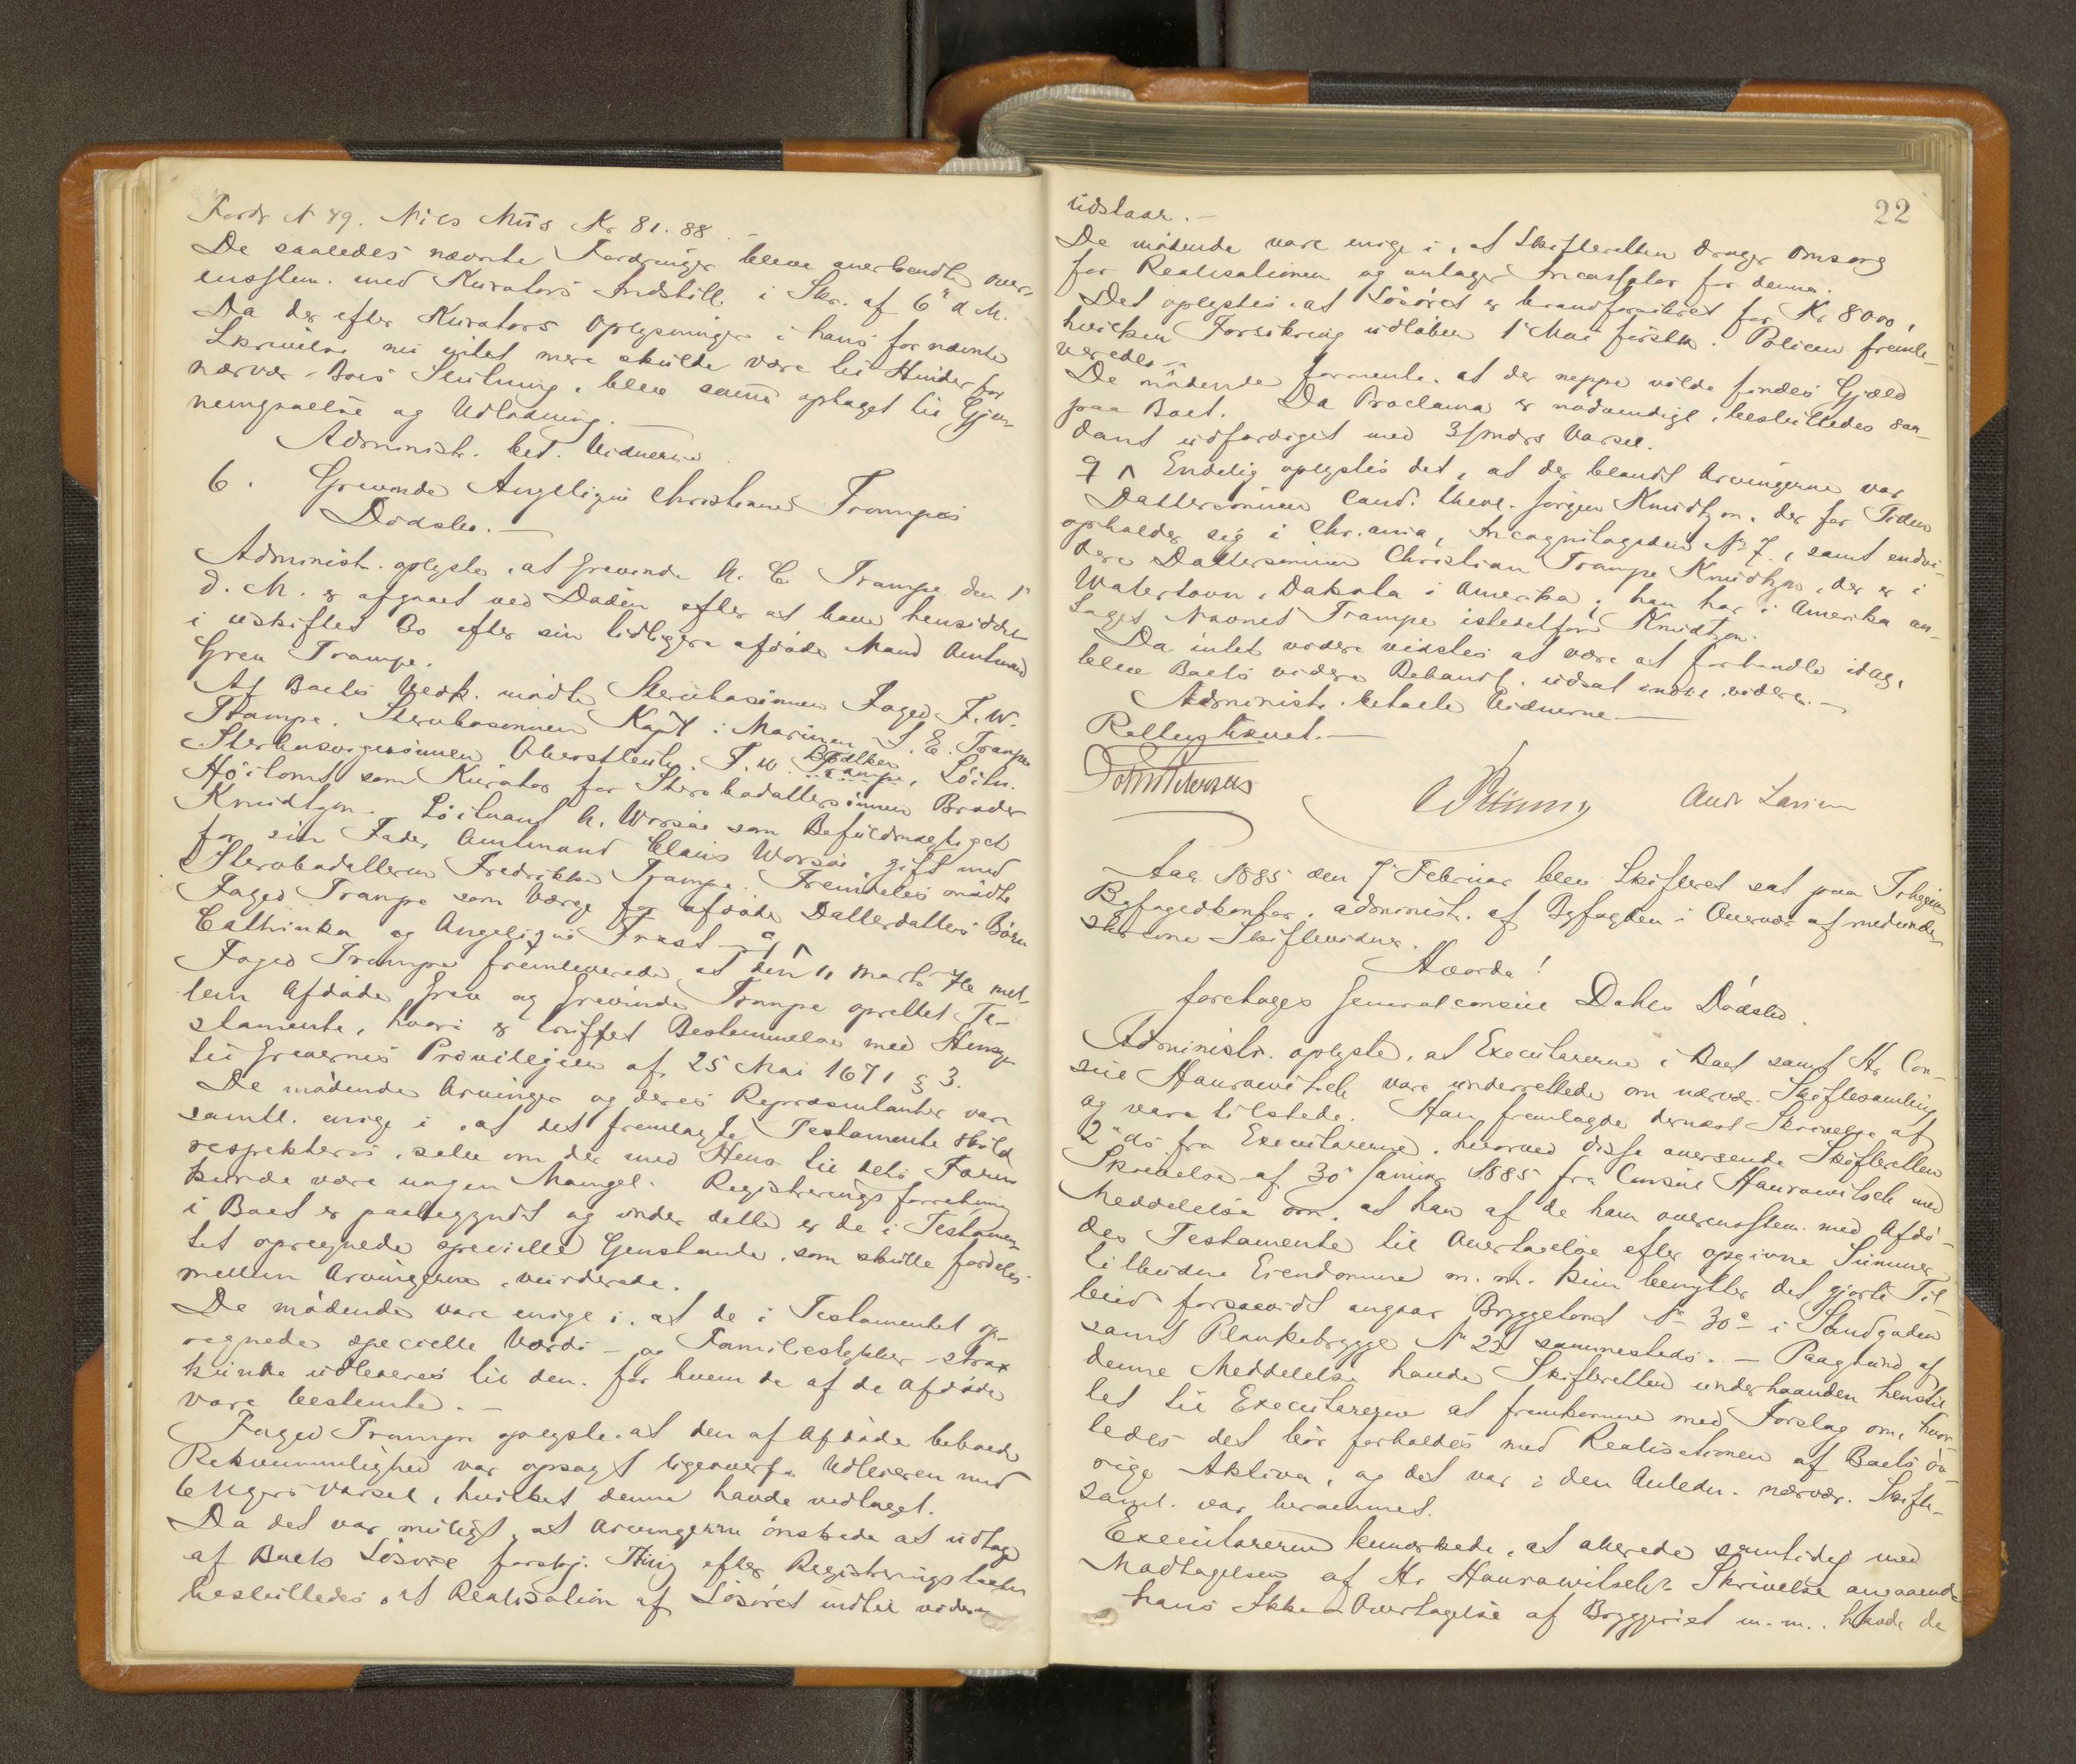 Fordr N 49. Nils Müs Kr 81.88.
De saaledes nævnte Fordringer bleve anerkendte over-
ensstem. med Kurators Indstill. i Skr. af 6te d. M.
Da der efter Kurators Oplysninger i hans fornævnte
Skrivelse nu intet mere skulde være til Hinder for
nærvær. Boes Slutning, blev samme optaget til Gjen-
nemgaaelse og Udlodning. —
Administr. bet. Vidnerne
6. Grevinde Angelique Christiane Trampes
Dødsbo. —
Administr. oplyste, at Grevinde A. C. Trampe den 1ste
d. M. er afgaaet ved Døden efter at have hensiddet
i uskiftet Bo efter sin tidligere afdøde Mand Amtmand
Grev Trampe.
Af Boets Vedk. mødte Sterbosønnen Foged F. W.
Trampe. Sterbosønnen Kapt. i Marinen S. E. Trampe
Sterbosvigersønnen Oberstleutn. F. W. Trampe, Löitn.
Bødtker
Höitomt som Kurator for Sterbodattersönnen Broder
Knudtzon. Löitnant A. Worsöe som Befuldmægtiget
for sin Fader Amtmand Claus Worsöe gift med
Sterbodatteren Fredrikke Trampe. Fremdeles mødte
Foged Trampe som Værge for afdøde Datterdatters Börn
Cathinka og Angelique Frost —
Foged Trampe fremleverede et den 11 Marts 72 mel-
lem Afdøde Grev og Grevinde Trampe oprettet Te-
stamente, hvori er truffet Bestemmelse med Hensyn
til Grevernes Privilegier af 25 Mai 1671 § 3.
De mødende Arvinger og deres Repræsentanter var
samtl. enige i, at det fremlagte Testamente skuld
respekteres, selv om der med Hens. til dets Form
kunde være nogen Mangel. Registreringsforretning
i Boet er paabegyndt og under dette er de i Testamen-
tet opregnede specielle Genstande, som skulle fordeles
mellem Arvingerne, vurderede.
De mødende vare enige i, at de i Testamentet op-
regnede specielle Værdi- og Familiestykker strax
kunde udleveres til den, for hvem de af de Afdøde
vare bestemte. —
Foged Trampe oplyste, at den af Afdøde beboede
Bekvemmelighed var opsagt ligeoverfor Udleieren med
6 Ugers Varsel, hvilket denne havde vedtaget.
Da det var muligt, at Arvingerne ønskede at udtage
af Boets Lösöre forskj. Ting efter Registreringstaxten
besluttedes, at Realisation af Lösöret indtil videre
22
udstaar. —
De mødende vare enige i, at Skifteretten drager Omsorg
for Realisationen og antager Incassator for denne.
Det oplystes, at Lösöret er brandforsikret for Kr 8000,
hvilken Forsikring udløber 1 Mai førstk. Policen fremle-
veredes. —
De mødende formente, at der neppe vilde findes Gjæld
paa Boet. Da Proclama er nødvendigt, besluttedes saa-
dant udfærdiget med 3 Mdrs Varsel.
Endelig oplystes det, at der blandt Arvingerne var
Dattersønnen Cand. theol. Jørgen Knudtzon, der for Tiden
opholder sig i Chr.ania, Incognitogaden No 7, samt endvi-
dere Dattersønnen Christian Trampe Knudtzon, der er i
Watertown, Dakota i Amerika, han har i Amerika an-
taget Navnet Trampe istedetfor Knudtzon.
Da intet videre vidstes at være at forhandle idag,
blev Boets videre Behandl. udsat indtil videre. —
Administr. betalte Vidnerne —
Retten hævet. —
And. Larsen
Aar 1885 den 7 Februar blev Skifteret sat paa Trhjems
Byfogedkontor, administr. af Byfogden i Overvær af medunder-
skrevne Skiftevidner.
Hvorda!
foretoges Generalconsul Dahls Dødsbo.
Administr. oplyste, at Executorerne i Boet samt Hr Con-
sul Hauravitsch vare underrettede om nærvær. Skiftesamling
og vare tilstede. Han fremlagde dernæst Skrivelse af
2den ds fra Executorerne, hvorved disse oversende Skifteretten
Skrivelse af 30 Januar 1885 fra Consul Hauravitsch med
Meddelelse om, at han af de ham overensstem. med Afdö-
des Testamente til Overtagelse efter opgivne Summer
tilbudne Eiendomme m. m. kun benytter det gjorte Til-
bud forsaavidt angaar Bryggetomt No 30a i Sandgaden
samt Plankebrygge No 22 sammesteds. — Paagrund af
denne Meddelelse havde Skifteretten underhaanden henstil-
let til Executorerne at fremkomme med Forslag om, hvor-
ledes det bör forholdes med Realisationen af Boets öv-
rige Aktiva, og det var i den Anledn. nærvær. Skifte-
saml. var berammet.
Executorerne bemærkede, at allerede samtidig med
Modtagelsen af Hr Hauravitschs Skrivelse angaaende
hans Ikke-Overtagelse af Bryggeriet m. m., havde de